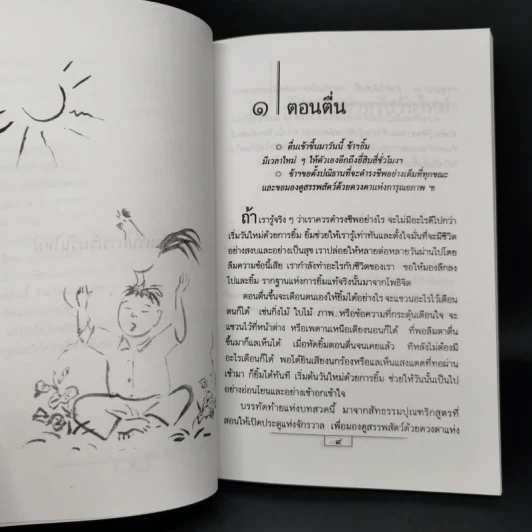 ๑ ตอนตื่น
๐ ตื่นเช้าขึ้นมาวันนี้ ข้าฯยิ้ม
มีเวลาใหม่ ๆ ให้ตัวเองอีกถึงยี่สิบสี่ชั่วโมงฯ
๐ ข้าฯขอตั้งปณิธานที่จะดำรงชีพอย่างเต็มที่ทุกขณะ
และขอมองดูสรรพสัตว์ด้วยดวงตาแห่งการุณยภาพ ฯ
ถ้าเรารู้จริง ๆ ว่าเราควรดำรงชีพอย่างไร จะไม่มีอะไรดีไปกว่า
เริ่มวันใหม่ด้วยการยิ้ม ยิ้มช่วยให้เรารู้เท่าทันและตั้งใจมั่นที่จะมีชีวิต
อย่างสงบและอย่างเป็นสุข เราปล่อยให้หลายต่อหลายวันผ่านไปโดย
ลืมความข้อนี้เสีย เรากำลังทำอะไรกับชีวิตของเรา ขอให้มองลึกลง
ไปและยิ้ม รากฐานแห่งการยิ้มแท้จริงนั้นมาจากโพธิจิต
ตอนตื่นขึ้นจะเตือนตนเองให้ยิ้มได้อย่างไร จะแขวนอะไรไว้เตือน
ตนก็ได้ เช่นกิ่งไม้ ใบไม้ ภาพ หรือข้อความที่กระตุ้นเตือนใจ จะ
แขวนไว้ที่หน้าต่าง หรือเพดานเหนือเตียงนอนก็ได้ ที่พอลืมตาตื่น
ขึ้นมาก็แลเห็นได้ เมื่อหัดยิ้มตอนตื่นจนเคยแล้ว ทีหลังไม่ต้องมี
อะไรเตือนก็ได้ พอได้ยินเสียงนกร้องหรือแลเห็นแสงแดดที่ทอผ่าน
เข้ามา ก็ยิ้มได้ทันที เริ่มต้นวันใหม่ด้วยการยิ้ม ช่วยให้วันนั้นเป็นไป
อย่างอ่อนโยนและอย่างเข้าอกเข้าใจ
บรรทัดท้ายแห่งบทสวดนี้ มาจากสัทธรรมปุณฑริกสูตรที่
สอนให้เปิดประตูแห่งจักรวาล เพื่อมองดูสรรพสัตว์ด้วยดวงตาแห่ง
๙